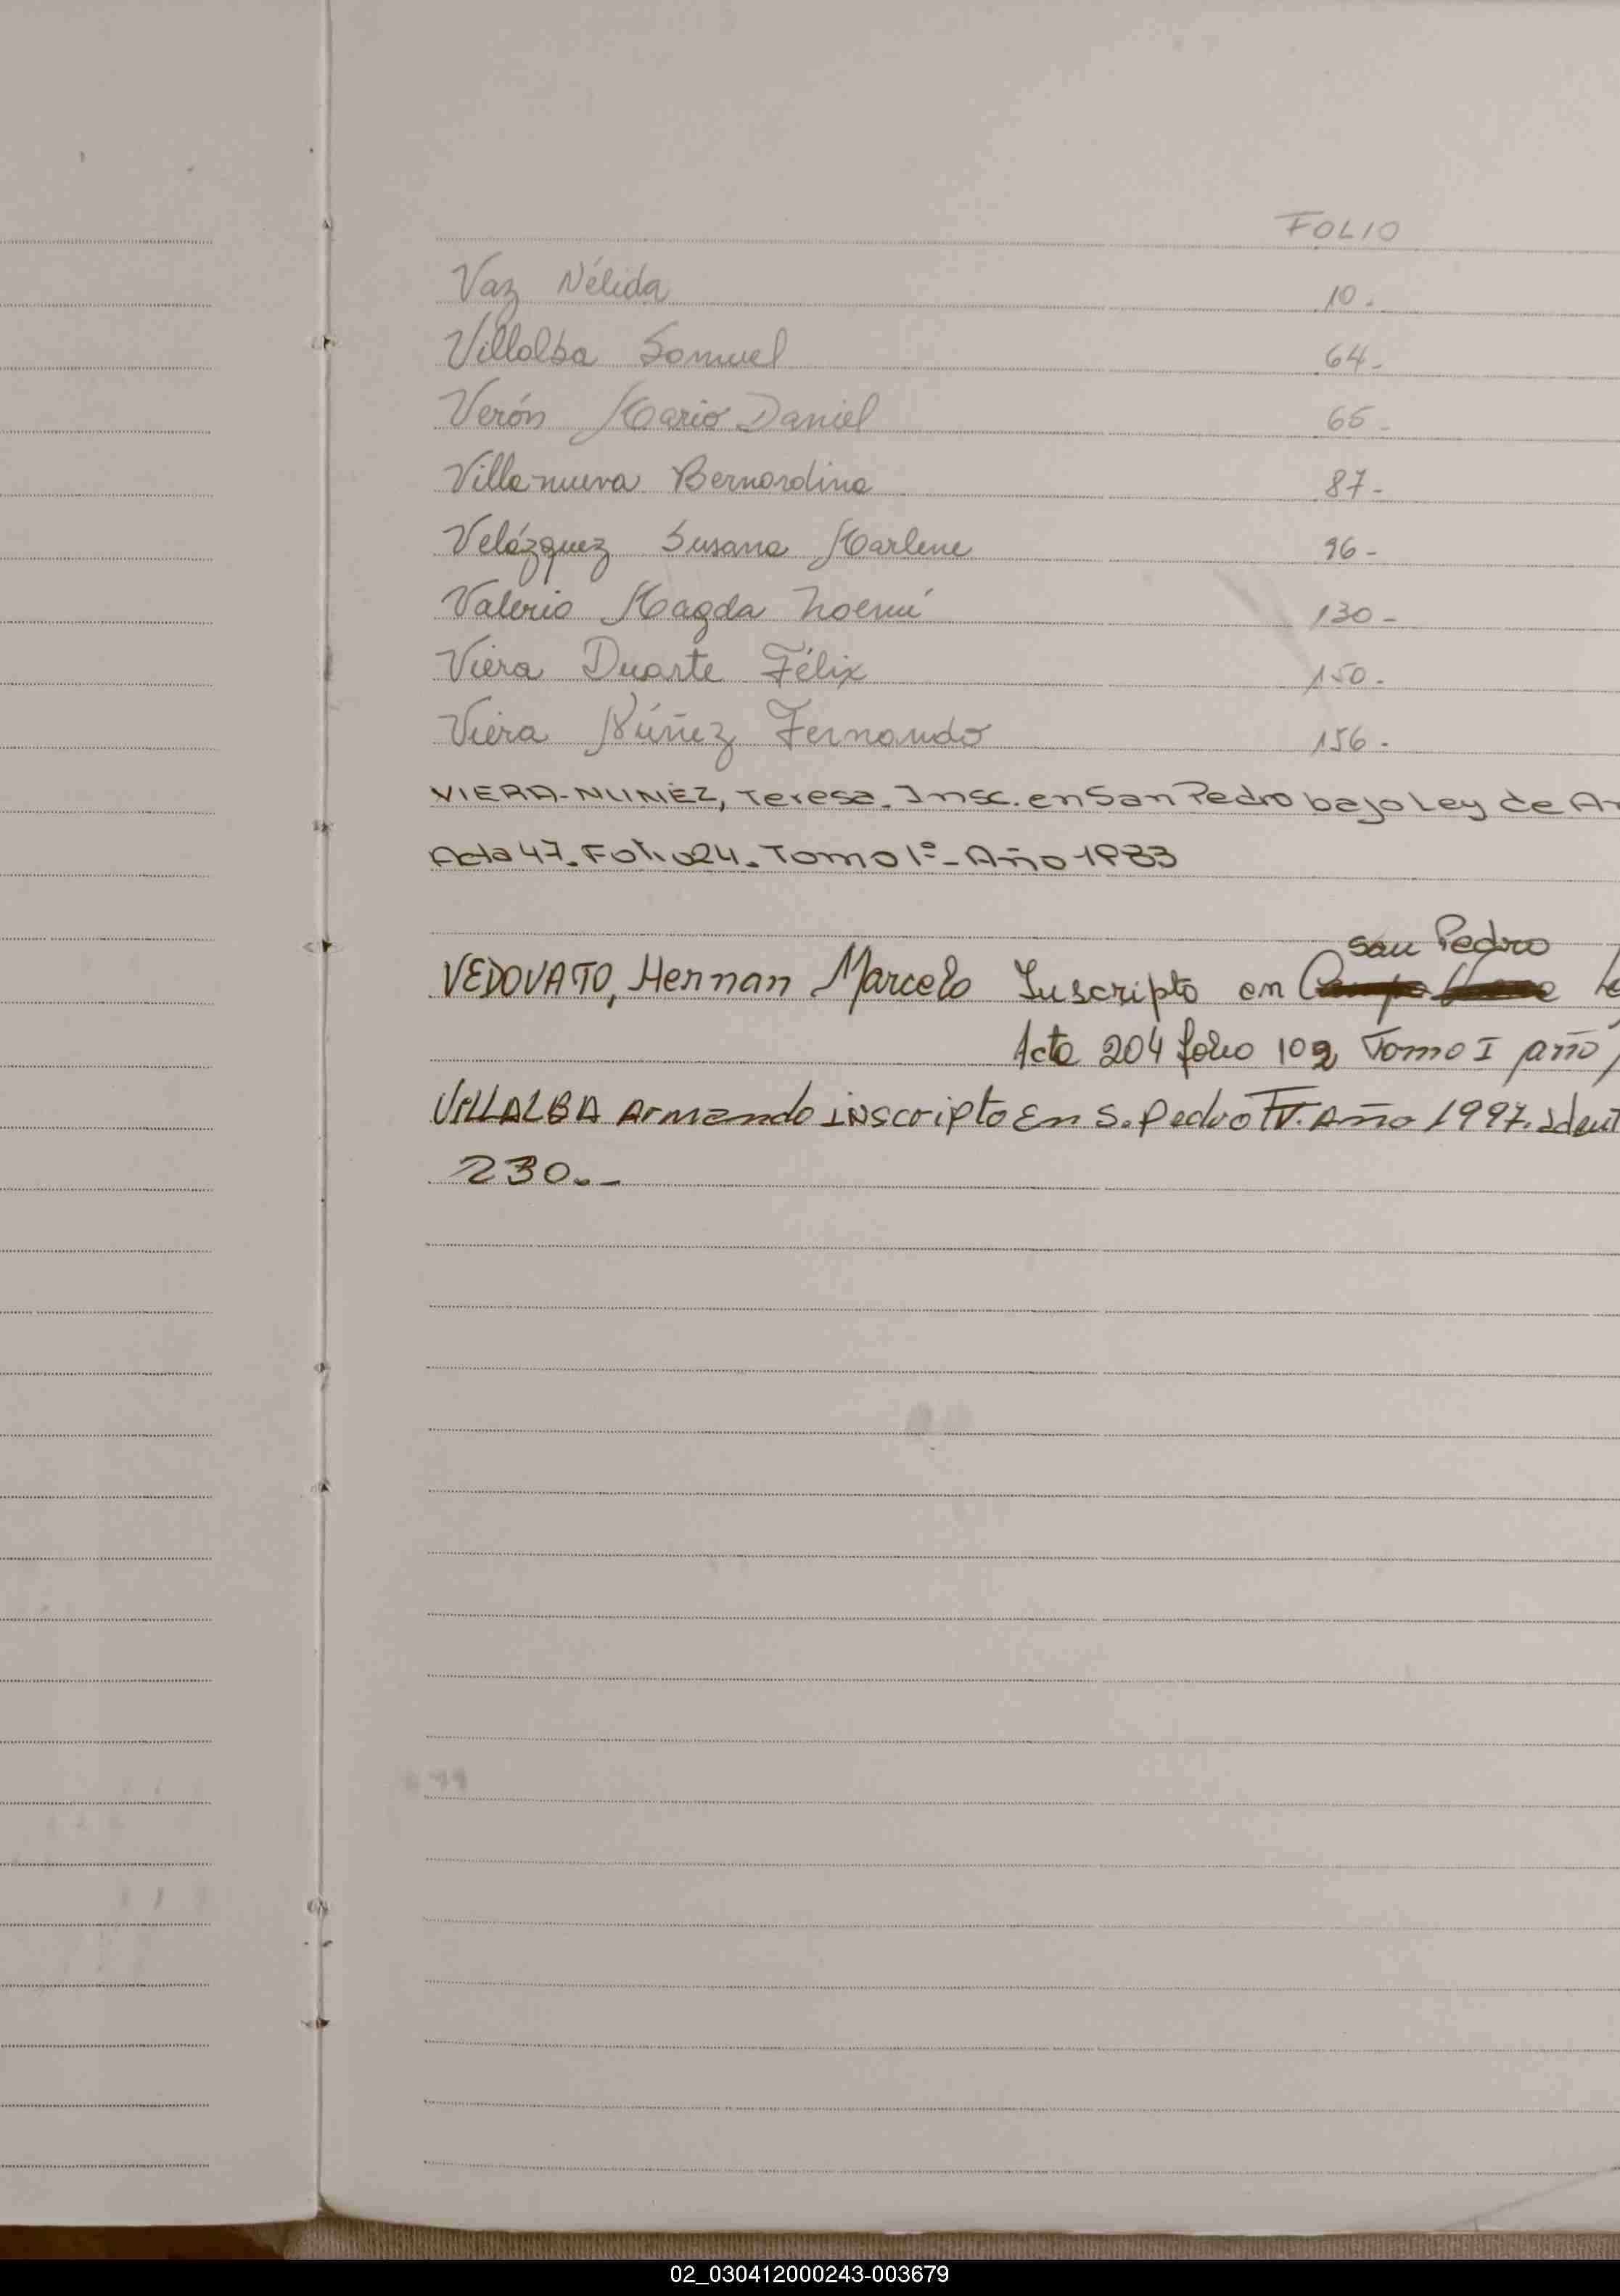 FOLIO
Vaz Nélida 10.
Villalba Samuel 64-
Verón Mario Daniel 65-
Villanueva Bernardina 87-
Velázquez Susana Marlene 96-
Valerio Magda Noemí 130-
Viera Duarte Félix 150.
Viera Núñez Fernando 156.
VIERA-NUNÉZ, Teresa. Insc. en San Pedro bajo Ley de
Acta 47. Folio 24. Tomo 1º- Año 1983
San Pedro
VEDOVATO, Hernan Marcelo Inscripto en
Acta 204 folio 102 Tomo I año
VILLALBA Armando inscripto En S. Pedro TV. Año 1997.
230.-
02_030412000243-003679